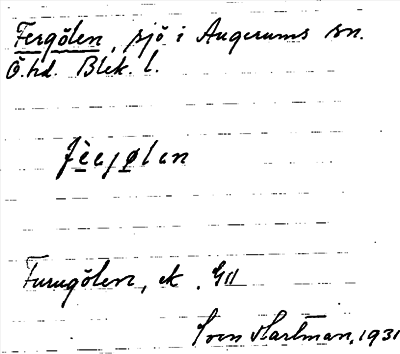 Fergölen, sjö i Augerums sn.
Ö. hd. Blek. l.
Furugölen, ek. G11
Sven Hartman, 1931